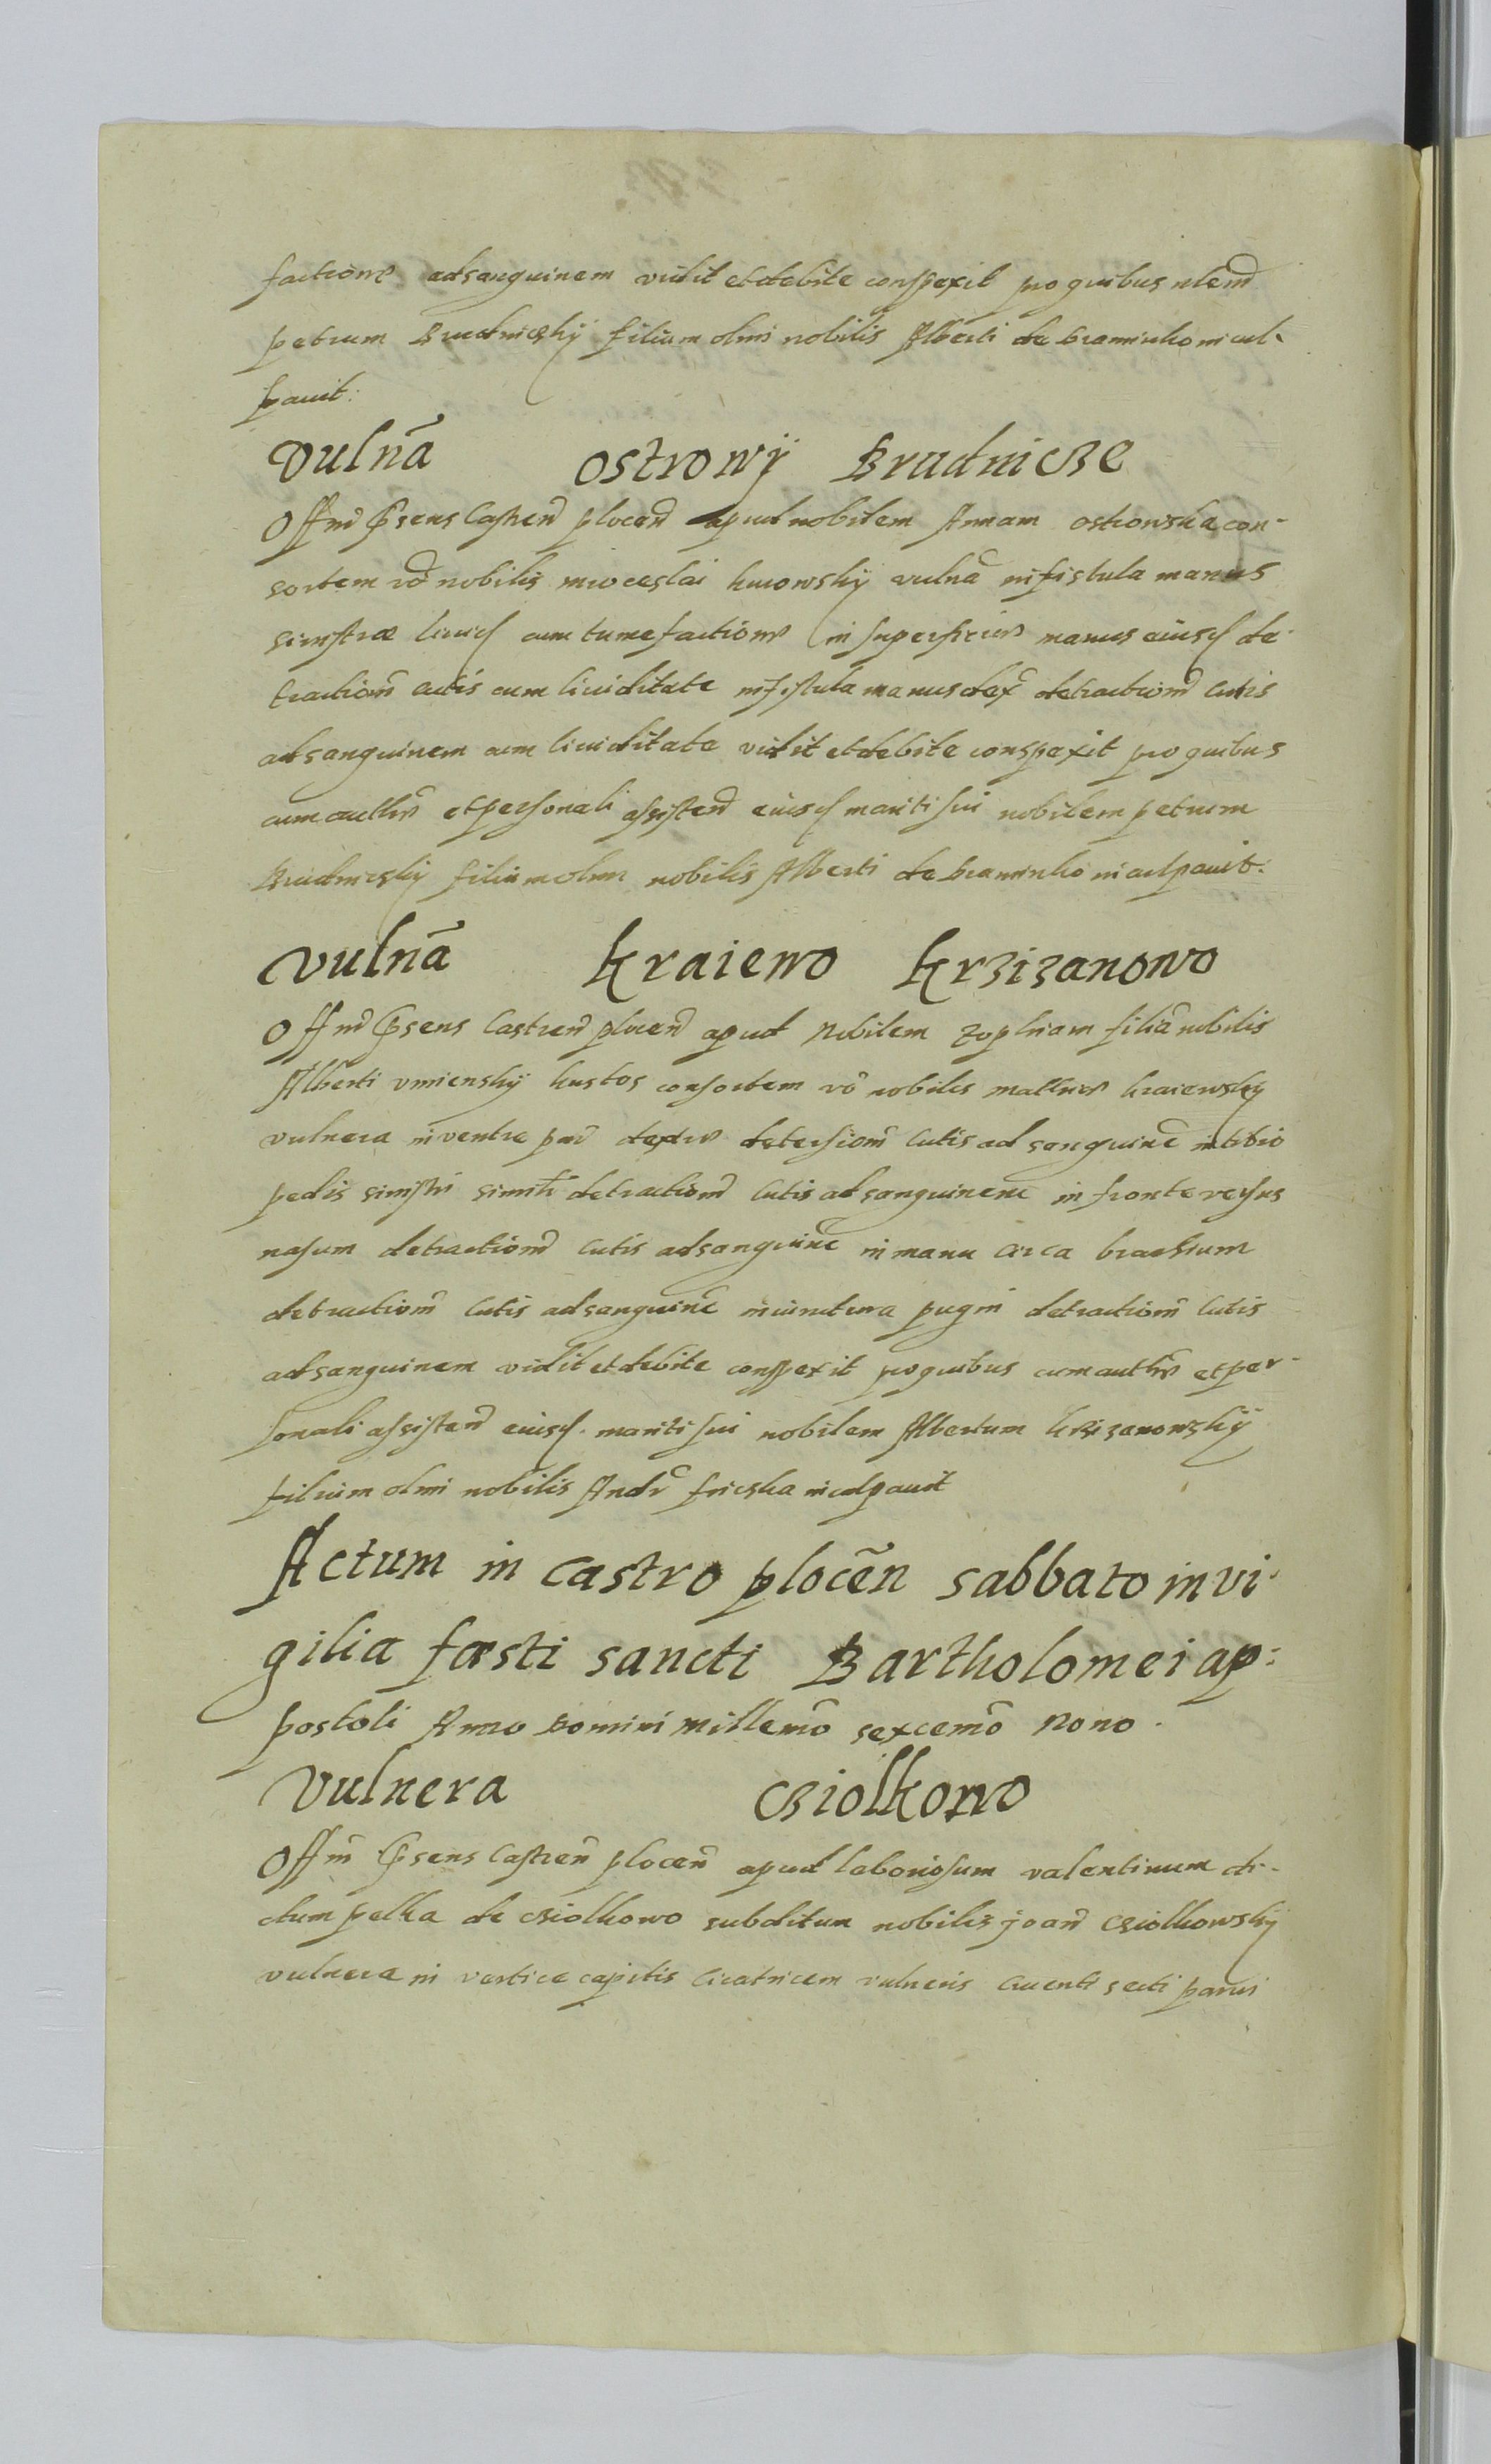 factionẽ ad sanguinem vidit et debite conspexit pro quibus idem
petrum Brudniczkÿ filium olim nobilis Alberti de braminko incul-
pauit:
Vulnã Ostrowÿ Brudnicze
Offm̃ p̃sens Castreñ ploceñ apud nobilem Annam ostrowska con-
sortem võ nobilis mioceslai kuiowskÿ vulnã in fistula manus
sinistræ cum tumefactionẽ in superficiẽ manus eiusd de-
tractionẽ cutis cum liuiditate in fistula manus dex̃ detractionẽ cutis
ad sanguinem cum liuiditate vidit et debite conspexit pro quibus
cum authẽ et personali assisteñ eiusd mariti sui nobilem petrum
Brudniczkÿ filium olim nobilis Alberti de braminko inculpauit:
Vulnã Kraiewo Krzizanowo
Offm̃ p̃sens Castreñ ploceñ apud Nobilem Zophiam filiã nobilis
Alberti vmienskÿ kustos consortem võ nobilis matthiẽ kraiewskÿ
vulnera in ventre detersionẽ cutis ad sanguinẽ in tibio
pedis sinistri similr̃ detractionẽ cutis ad sanguinem in fronte versus
nasum detractionẽ cutis ad sanguinẽ in manu circa brachium
detractionẽ cutis ad sanguinẽ in iunctura pugni detractionẽ cutis
ad sanguinem vidit et debite conspexit pro quibus cum authẽ et per-
sonali assisteñ eiusd. mariti sui nobilem Albertum krzizanowskÿ
filium olim nobilis Andr̃ fricska inculpauit
Actum in Castro plocẽn sabbato in vi-
gilia fæsti sancti Bartholomei ap:
postoli Anno Domini Millemõ sexcemõ Nono.
Vulnera Cziolkowo
Offm̃ p̃sens Castreñ ploceñ apud laboriosum valentinum di-
ctum pelka de cziolkowo subditum nobilis joañ Cziolkowskÿ
vulnera in vertice capitis Cicatricem vulneris Cruenti secti parui